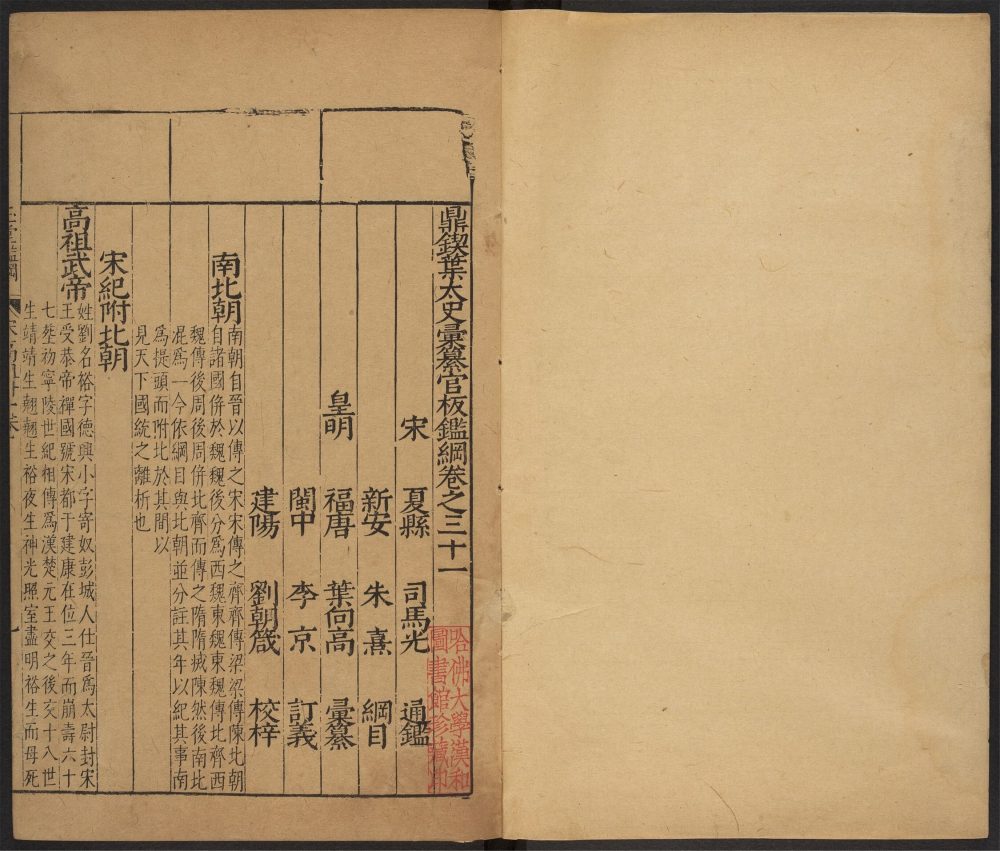 鼎鍥葉太史彙纂官板鑑綱卷之三十一
宋 夏縣 司馬光 通鑑
新安 朱熹 綱目
皇明 福唐 葉向高 彙纂
閩中 李京 訂義
建陽 劉朝箴 校梓
南北朝
南朝自晉以傳之宋宋傳之齊齊傳梁梁傳陳北朝
自諸國併於魏魏後分爲西魏東魏東魏傳北齊西
魏傳後周後周併北齊而傳之隋隋滅陳然後南北
混爲一今依綱目與北朝並分註其年以紀其事南
爲提頭而附北於其間以
見天下國統之離析也
宋紀附北朝
高祖武帝
姓劉名裕字德興小字寄奴彭城人仕晉爲太尉封宋
王受恭帝禪國號宋都于建康在位三年而崩壽六十
七葬初寧陵世紀相傳爲漢楚元王交之後交十八世
生靖靖生翹翹生裕夜生神光照室盡明裕生而母死
哈佛大學漢和
圖書館珍藏印